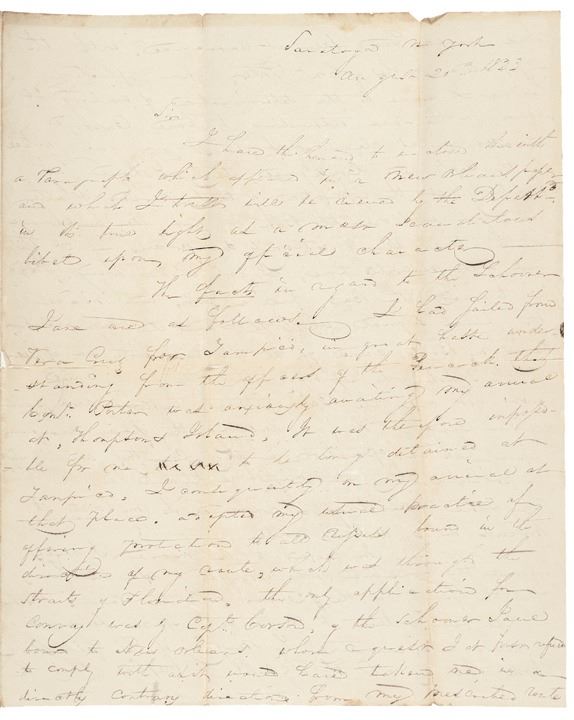 Saratoga N York
August 20th 1823
Sir
I have the honor to enclose therewith
a Paragraph which appeared in a New paper
and which I trust will be viewed by the Departt
in its true light, as a most Scandalous
libel upon my official character
The facts in regard to the Schooner
Jane are as follows. I had sailed from
Vera Cruz for Tampico, in great haste under-
standing from the officers of the that
Capt. Porter was anxiously awaiting my arrival
at Thompsons Island, It was therefore impossi-
ble for me to be long detained at
Tampico, I consequently on my arrival at
that place, adopted my usual practice of
offering protection to all vessels bound in the
direction of my route, which was through the
straits of Florida, the only application for
Convoy was by Capt. of the Schooner Jane
bound to New orleans, whose request I at refused
to comply with as it would have taken me in a
directly contrary direction from my route